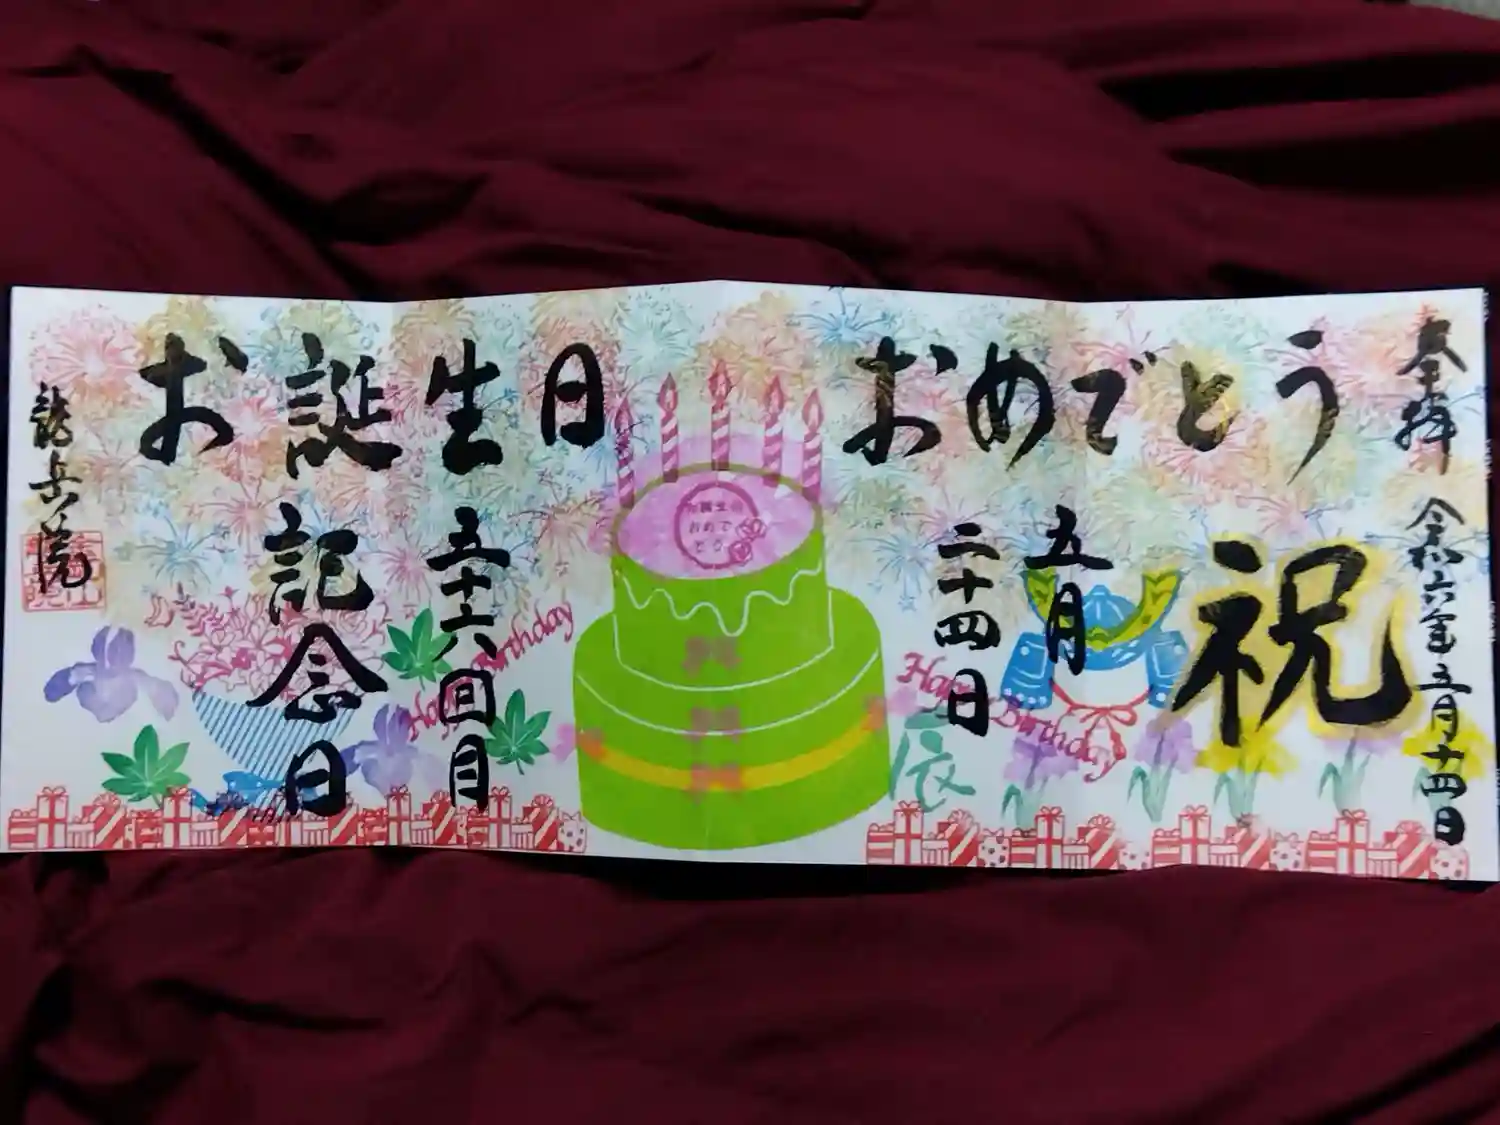 奉拝
令和六年五月十四日
祝
お誕生日
おめでとう
五月
二十四日
五十六回目
記念日
お誕生日
おめで
とう
Happy Birthday
Happy Birthday
辰